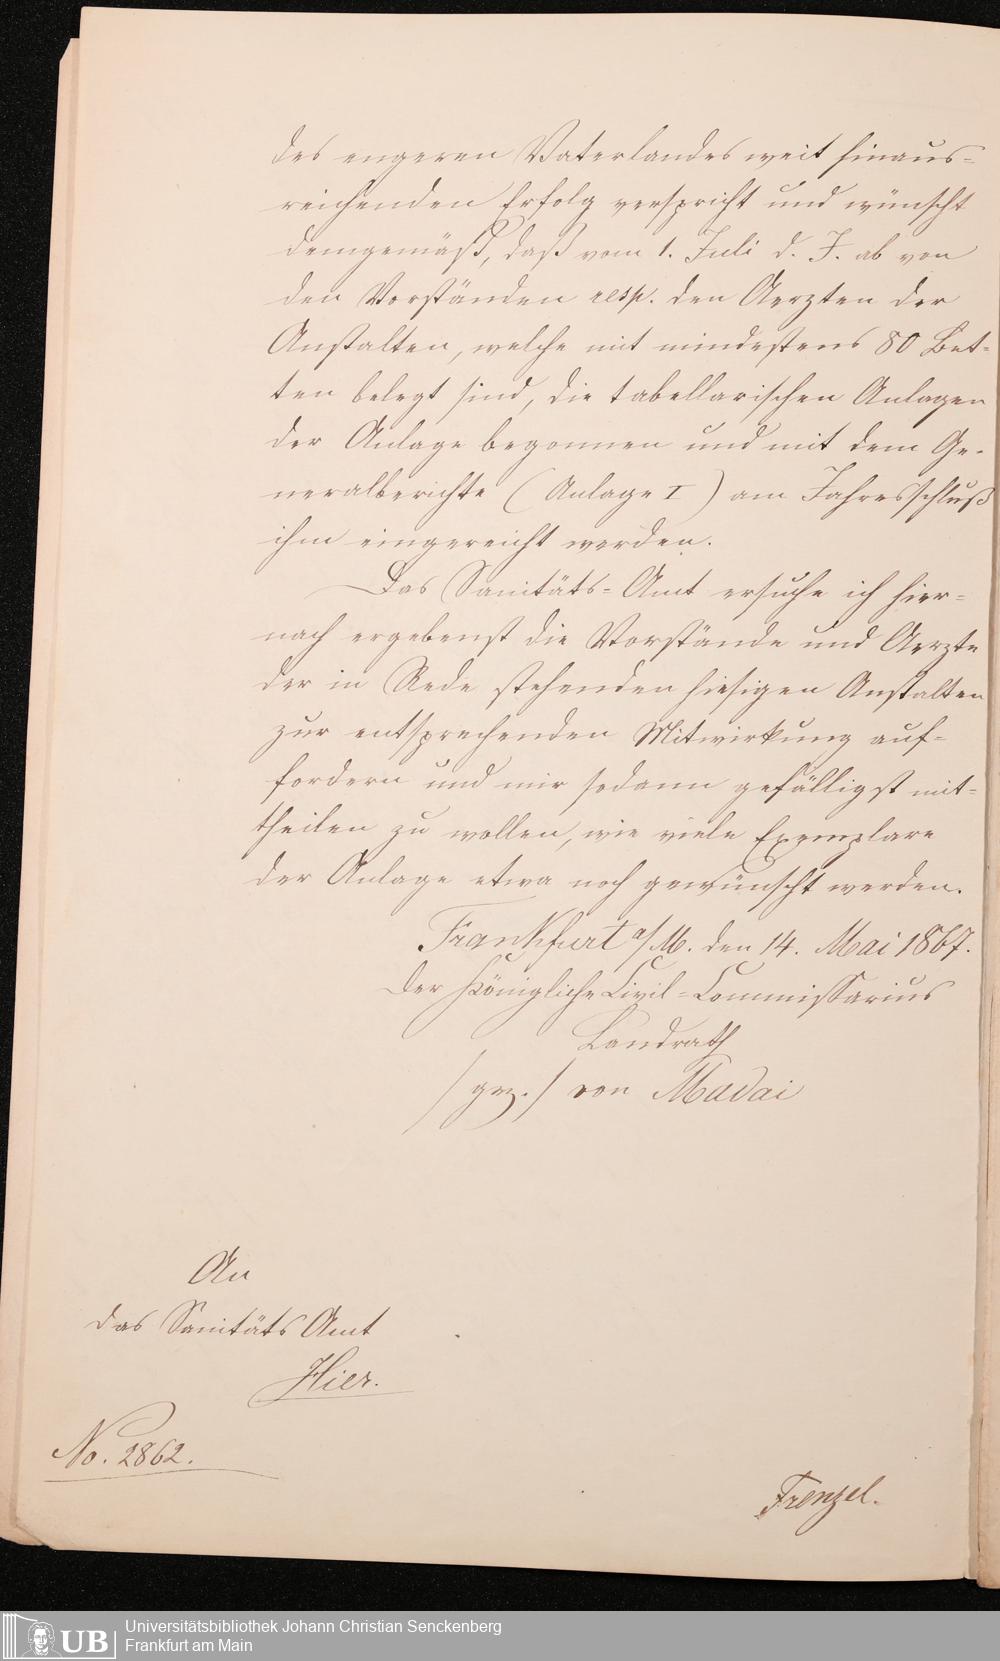 des engeren Vaterlandes weit hinaus=
reichenden Erfolg verspricht und wünscht
demgemäß, daß vom 1. Juli d. J. ab von
den Vorständen resp. den Aerzten der
Anstalten, welche mit mindestens 80 Bet=
ten belegt sind, die tabellarischen Anlagen
der Anlage begonnen und mit dem Ge=
neralberichte (Anlage I) am Jahresschluß
ihm eingereicht werden.
Das Sanitäts=Amt ersuche ich hier=
nach ergebenst die Vorstände und Aerzte
der in Rede stehenden hiesigen Anstalten
zur entsprechenden Mitwirkung auf=
fordern und mir sodann gefälligst mit=
theilen zu wollen, wie viele Exemplare
der Anlage etwa noch gewünscht werden.
Frankfurt a/M. den 14. Mai 1867.
Der Königliche Civil=Commissarius
Landrath
/gez./ von Madai
An
das Sanitäts Amt
Hier.
No. 2862.
Frenzel.
UB
Universitätsbibliothek Johann Christian Senckenberg
Frankfurt am Main